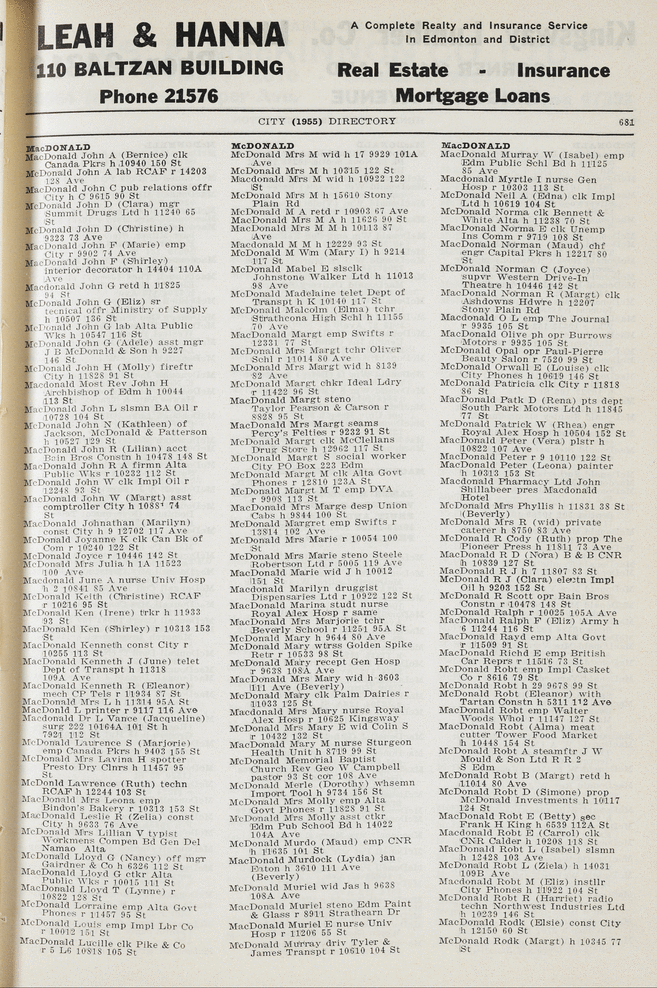 LEAH & HANNA
110 BALTZAN BUILDING
Phone 21576
A Complete Realty and Insurance Service
In Edmonton and District
Real Estate - Insurance
Mortgage Loans
CITY (1955) DIRECTORY 681
MacDONALD
MacDonald John A (Bernice) clk
Canada Pkrs h 10940 150 St
McDonald John A lab RCAF r 14203
128 Ave
MacDonald John C pub relations offr
City h C 9615 90 St
McDonald John D (Clara) mgr
Summit Drugs Ltd h 11240 65
St
McDonald John D (Christine) h
9323 73 Ave
MacDonald John F (Marie) emp
City r 9902 74 Ave
MacDonald John F (Shirley)
interior decorator h 14404 110A
Ave
Macdonald John G retd h 11825
94 St
McDonald John G (Eliz) sr
tecnical offr Ministry of Supply
h 10507 136 St
McDonald John G lab Alta Public
Wks h 10547 116 St
McDonald John G (Adele) asst mgr
J B McDonald & Son h 9227
146 St
McDonald John H (Molly) fireftr
City h 11828 91 St
Macdonald Most Rev John H
Archbishop of Edm h 10044
113 St
MacDonald John L slsmn BA Oil r
10728 104 St
McDonald John N (Kathleen) of
Jackson, McDonald & Patterson
h 10527 129 St
McDonald John R (Lilian) acct
Bain Bros Constn h 10478 148 St
MacDonald John R A firmn Alta
Public Wks r 10232 112 St
McDonald John W clk Impl Oil r
12248 93 St
MacDonald John W (Margt) asst
comptroller City h 10881 74
St
McDonald Johnathan (Marilyn)
const City h 9 12702 117 Ave
McDonald Joyanne K clk Can Bk of
Com r 10240 122 St
McDonald Joyce r 10446 142 St
McDonald Mrs Julia h 1A 11523
100 Ave
Macdonald June A nurse Univ Hosp
h 2 10841 85 Ave
McDonald Keith (Christine) RCAF
r 10216 95 St
McDonald Ken (Irene) trkr h 11933
93 St
McDonald Ken (Shirley) r 10313 153
St
McDonald Kenneth const City r
10255 113 St
McDonald Kenneth J (June) telet
Dept of Transpt h 11318
109A Ave
MacDonald Kenneth R (Eleanor)
mech CP Tels r 11934 87 St
MacDonald Mrs L h 11314 95A St
McDonld L printer r 9117 116 Ave
Macdonald Dr L Vance (Jacqueline)
surg 222 10164A 101 St h
7921 112 St
McDonald Laurence S (Marjorie)
emp Canada Pkrs h 9403 155 St
McDonald Mrs Lavina H spotter
Presto Dry Clnrs h 11457 95
St
McDonld Lawrence (Ruth) techn
RCAF h 12244 103 St
MacDonald Mrs Leona emp
Bindon's Bakery r 10313 153 St
MacDonald Leslie R (Zelia) const
City h 9633 76 Ave
McDonald Mrs Lillian V typist
Workmens Compen Bd Gen Del
Namao Alta
McDonald Lloyd G (Nancy) off mgr
Gairdner & Co h 6326 112 St
MacDonald Lloyd G ctkr Alta
Public Wks r 10015 111 St
McDonald Lloyd T (Lynne) r
10822 128 St
McDonald Lorraine emp Alta Govt
Phones r 11457 95 St
McDonald Louis emp Impl Lbr Co
r 10012 151 St
MacDonald Lucille clk Pike & Co
r 5 L6 10818 105 St
McDONALD
McDonald Mrs M wid h 17 9929 101A
Ave
McDonald Mrs M h 10315 122 St
Macdonald Mrs M wid h 10922 122
St
McDonald Mrs M h 15610 Stony
Plain Rd
McDonald M A retd r 10903 67 Ave
MacDonald Mrs M A h 11626 90 St
MacDonald Mrs M M h 10113 87
Ave
Macdonald M M h 12229 93 St
McDonald M Wm (Mary I) h 9214
117 St
McDonald Mabel E slsclk
Johnstone Walker Ltd h 11013
98 Ave
McDonald Madelaine telet Dept of
Transpt h K 10140 117 St
McDonald Malcolm (Elma) tchr
Strathcona High Schl h 11155
70 Ave
MacDonald Margt emp Swifts r
12331 77 St
McDonald Mrs Margt tchr Oliver
Schl r 11014 80 Ave
McDonald Mrs Margt wid h 8139
82 Ave
MacDonald Margt chkr Ideal Ldry
r 11422 96 St
MacDonald Margt steno
Taylor Pearson & Carson r
8828 95 St
MacDonald Mrs Margt seams
Percy's Felties r 9232 91 St
MacDonald Margt clk McClellans
Drug Store h 12962 117 St
MacDonald Margt S social worker
City PO Box 223 Edm
MacDonald Margt M clk Alta Govt
Phones r 12810 123A St
MacDonald Margt M T emp DVA
r 9908 113 St
MacDonald Mrs Marge desp Union
Cabs h 9844 100 St
McDonald Margret emp Swifts r
13814 102 Ave
McDonald Mrs Marie r 10054 100
St
McDonald Mrs Marie steno Steele
Robertson Ltd r 5005 119 Ave
McDonald Marie wid J h 10012
151 St
Macdonald Marilyn druggist
Dispensaries Ltd r 10922 122 St
MacDonald Marina studt nurse
Royal Alex Hosp r same
McDonald Mrs Marjorie tchr
Beverly School r 11251 95A St
McDonald Mary h 9644 80 Ave
McDonald Mary wtrss Golden Spike
Retr r 10533 98 St
McDonald Mary recept Gen Hosp
r 9638 108A Ave
McDonald Mrs Mary wid h 3603
111 Ave (Beverly)
McDonald Mary clk Palm Dairies r
11033 125 St
Macdonald Mrs Mary nurse Royal
Alex Hosp r 10625 Kingsway
McDonald Mrs Mary E wid Colin S
r 10432 132 St
McDonald Mary M nurse Sturgeon
Health Unit h 8719 99 St
McDonald Memorial Baptist
Church Rev Geo W Campbell
pastor 93 St cor 108 Ave
McDonald Merle (Dorothy) whsemn
Import Tool h 9734 156 St
McDonald Mrs Molly emp Alta
Govt Phones r 11828 91 St
McDonald Mrs Molly asst ctkr
Edm Pub School Bd h 14022
104A Ave
McDonald Murdo (Maud) emp CNR
h 11635 101 St
MacDonald Murdock (Lydia) jan
Exton h 3610 111 Ave
(Beverly)
McDonald Muriel wid Jas h 9638
108A Ave
MacDonald Muriel steno Edm Paint
& Glass r 8911 Strathearn Dr
MacDonald Muriel E nurse Univ
Hosp r 11206 55 St
McDonald Murray driv Tyler &
James Transpt r 10610 104 St
MacDONALD
MacDonald Murray W (Isabel) emp
Edm Public Schl Bd h 11125
85 Ave
Macdonald Myrtle I nurse Gen
Hosp r 10303 113 St
MacDonald Neil A (Edna) clk Impl
Ltd h 10619 104 St
MacDonald Norma clk Bennett &
White Alta h 11238 70 St
MacDonald Norma E clk Unemp
Ins Comm r 9719 108 St
MacDonald Norman (Maud) chf
engr Capital Pkrs h 12217 80
St
MacDonald Norman C (Joyce)
supvr Western Drive-In
Theatre h 10446 142 St
MacDonald Norman R (Margt) clk
Ashdowns Hdwre h 12207
Stony Plain Rd
Macdonald O L emp The Journal
r 9935 105 St
MacDonald Olive ph opr Burrows
Motors r 9935 105 St
MacDonald Opal opr Paul-Pierre
Beauty Salon r 7520 99 St
McDonald Orwall E (Louise) clk
City Phones h 10619 146 St
McDonald Patricia clk City r 11818
86 St
MacDonald Patk D (Rena) pts dept
South Park Motors Ltd h 11845
77 St
McDonald Patrick W (Rhea) engr
Royal Alex Hosp h 10504 152 St
McDonald Peter (Vera) plstr h
10822 107 Ave
McDonald Peter r 9 10110 122 St
MacDonald Peter (Leona) painter
h 10313 153 St
Macdonald Pharmacy Ltd John
Shillabeer pres Macdonald
Hotel
McDonald Mrs Phyllis h 11831 38 St
(Beverly)
McDonald Mrs R (wid) private
caterer h 8750 83 Ave
McDonald R Cody (Ruth) prop The
Pioneer Press h 11811 73 Ave
McDonald R D (Nora) B & B CNR
h 10839 127 St
McDonald R J h 7 11807 83 St
McDonald R J (Clara) electn Impl
Oil h 9203 152 St
McDonald R Scott opr Bain Bros
Constn r 10478 148 St
McDonald Ralph r 10025 105A Ave
MacDonald Ralph F (Eliz) Army h
6 11244 116 St
MacDonald Rayd emp Alta Govt
r 11509 91 St
MacDonald Richd E emp British
Car Reprs r 11516 73 St
McDonald Robt emp Impl Casket
Co r 8616 79 St
McDonald Robt h 29 9678 99 St
McDonald Robt (Eleanor) with
Tartan Constn h 5311 112 Ave
McDonald Robt emp Walter
Woods Whol r 11147 127 St
MacDonald Robt (Alma) meat
cutter Tower Food Market
h 10448 154 St
McDonald Robt A steamftr J W
Mould & Son Ltd R R 2
S Edm
McDonald Robt B (Margt) retd h
11014 80 Ave
McDonald Robt D (Simone) prop
McDonald Investments h 10117
124 St
MacDonald Robt E (Betty) sec
Frank H King h 6539 112A St
Macdonald Robt E (Carrol) clk
CNR Calder h 10208 118 St
McDonald Robt L (Isabel) slsmn
h 12428 103 Ave
McDonald Robt L (Ziela) h 14031
109B Ave
Macdonald Robt M (Eliz) instllr
City Phones h 11922 104 St
McDonald Robt R (Harriet) radio
techn Northwest Industries Ltd
h 10239 146 St
McDonald Rodk (Elsie) const City
h 12150 60 St
McDonald Rodk (Margt) h 10345 77
St